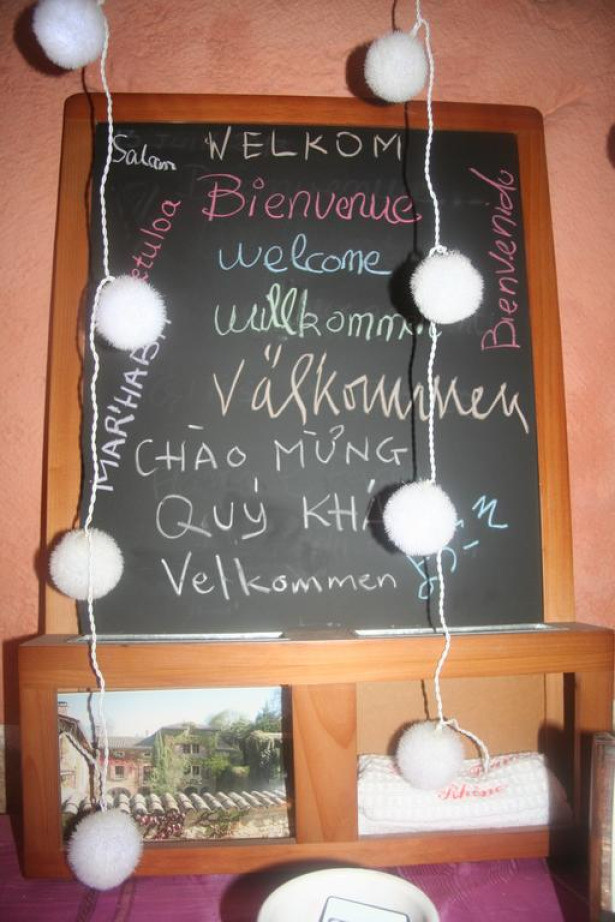 Salam
WELKOM
Bienvenue
welcome
willkommen
Välkommen
CHÀO MỪNG
QUÝ KHÁ
Velkommen
etuloa
MAR'HABA
Bienvenido
Rhône